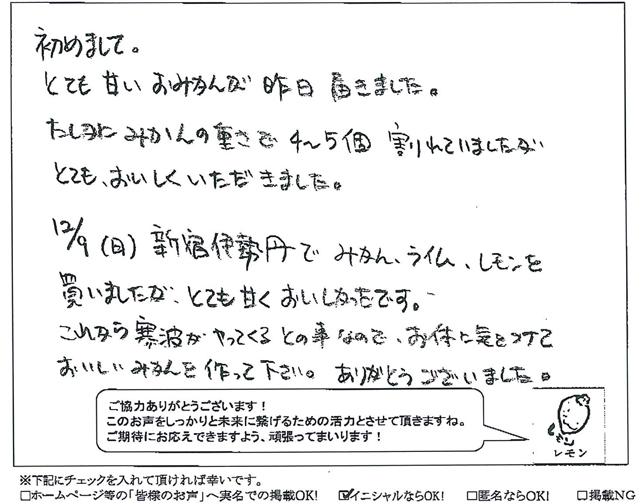 初めまして。
とても甘いおみかんが昨日届きました。
たしかにみかんの重さで4〜5個割れていましたが
とても、おいしくいただきました。
12/9(日)新宿伊勢丹でみかん、ライム、レモンを
買いましたが、とても甘くおいしかったです。
これから寒波がやってくるとの事なので、お体に気をつけて
おいしいみかんを作って下さい。ありがとうございました。
ご協力ありがとうございます!
このお声をしっかりと未来に繋げるための活力とさせて頂きますね。
ご期待にお応えできますよう、頑張ってまいります!
レモン
※下記にチェックを入れて頂ければ幸いです。
□ホームページ等の「皆様のお声」へ実名での掲載OK! ☑イニシャルならOK! □匿名ならOK! □掲載NG